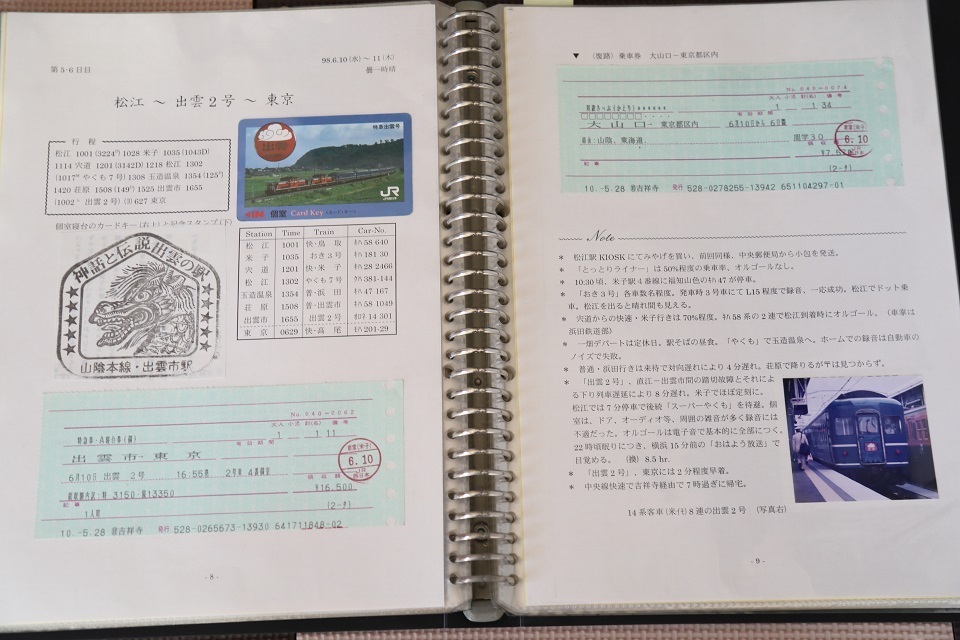 第5-6日目
98.6.10 (水) ~ 11 (木)
曇一時晴
松江 ~ 出雲2号 ~ 東京
行 程
松江 1001 (3224ᴰ) 1028 米子 1035 (1043D)
1114 宍道 1201 (3142D) 1218 松江 1302
(1017ᴹ やくも7号) 1308 玉造温泉 1354 (125ᴰ)
1420 荘原 1508 (149ᴰ) 1525 出雲市 1655
出雲2号) (3) 627 東京
個室寝台のカードキー (右上) と記念スタンプ (下)
特急出雲号
JR
個室 Card Key
Station Time Train Car-No.
松 江 1001 快・鳥 取 ｷﾊ58 640
米 子 1035 おき3号 ｷﾊ181 30
宍 道 1201 快・米 子 ｷﾊ28 2466
松 江 1302 やくも7号 ｸﾊ381-144
玉造温泉 1354 普・浜 田 ｷﾊ47 167
荘 原 1508 普・出雲市 ｷﾊ58 1049
出雲市 1655 出雲2号 14 301
東 京 0629 快・高 尾 201-29
神話と伝説出雲の駅
山陰本線・出雲市駅
No. 040-0062
特急券・A寝台券(個)
1 11
出雲市 - 東京
6月10日 出雲 2号 16:55発 2号車 4番個室
3150・ 13350
¥16,500
6.10
1人用
(2-タ)
10.-5.28 吉祥寺 発行 528-0265673-13930 641711848-02
- 8 -
▼ (復路) 乗車券 大山口~東京都区内
No. 040-0074
1 1 34
大 山 口 - 東京都区内 6月10日から 6日間
経由:山陰、東海道
周学30
6.10
(2-タ)
10.-5.28 吉祥寺 発行 528-0278255-13942 651104297-01
Note
* 松江駅KIOSKにてみやげを買い、前回同様、中央郵便局から小包を発送。
* 「とっとりライナー」は50%程度の乗車率、オルゴールなし。
* 10:30頃、米子駅4番線に福知山色のｷﾊ47が停車。
* 「おき3号」各車数名程度。発車時3号車にてL15程度で録音、一応成功。松江でドット乗
車。松江を出ると晴れ間も見える。
* 宍道からの快速・米子行きは70%程度。ｷﾊ58系の2連で松江到着時にオルゴール。(車掌は
浜田鉄道部)
* 一畑デパートは定休日。駅そばの昼食。「やくも」で玉造温泉へ。ホームでの録音は自動車の
ノイズで失敗。
* 普通・浜田行きは来待で対向遅れにより4分遅れ。荘原で降りるが〒は見つからず。
* 「出雲2号」、直江―出雲市間の踏切故障とそれによ
る下り列車遅延により8分遅れ。米子でほぼ定刻に。
松江では7分停車で後続「スーパーやくも」を待避。個
室は、ドア、オーディオ等、周囲の雑音が多く録音には
不適だった。オルゴールは電子音で基本的に全部につく。
22時頃眠りにつき、横浜15分前の「おはよう放送」で
目覚める。 (換) 8.5 hr.
* 「出雲2号」、東京には2分程度早着。
* 中央線快速で吉祥寺経由で7時過ぎに帰宅。
14系客車 (米ｲﾓ) 8連の出雲2号 (写真右)
- 9 -